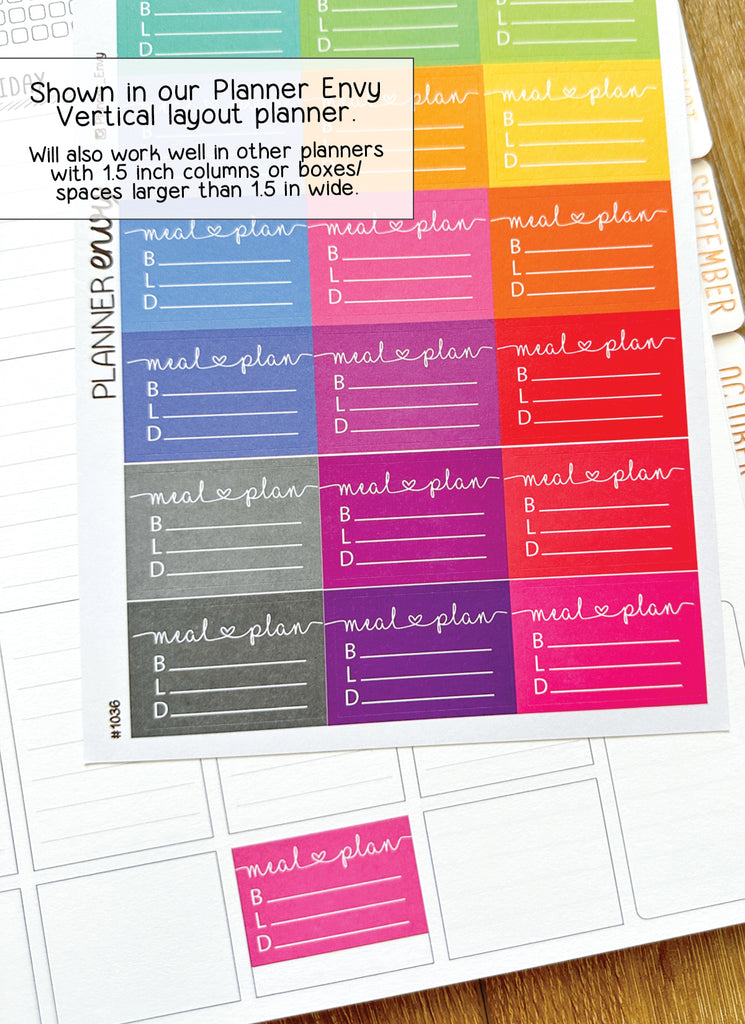 IDAY
Shown in our Planner Envy
Vertical layout planner.
Will also work well in other planners
with 1.5 inch columns or boxes/
spaces larger than 1.5 in wide.
Envy
PLANNER envy
#1036
B
L
D
B
L
D
D
plan
meal plan
B
L
D
meal plan
B
L
D
meal plan
B
L
D
meal plan
B
L
D
meal plan
B
L
D
meal plan
B
L
D
meal plan
B
L
D
meal plan
B
L
D
meal plan
B
L
D
meal plan
B
L
D
meal plan
B
L
D
meal plan
B
L
D
meal plan
B
L
D
meal plan
B
L
D
SEPTEMBER
OCTOBER